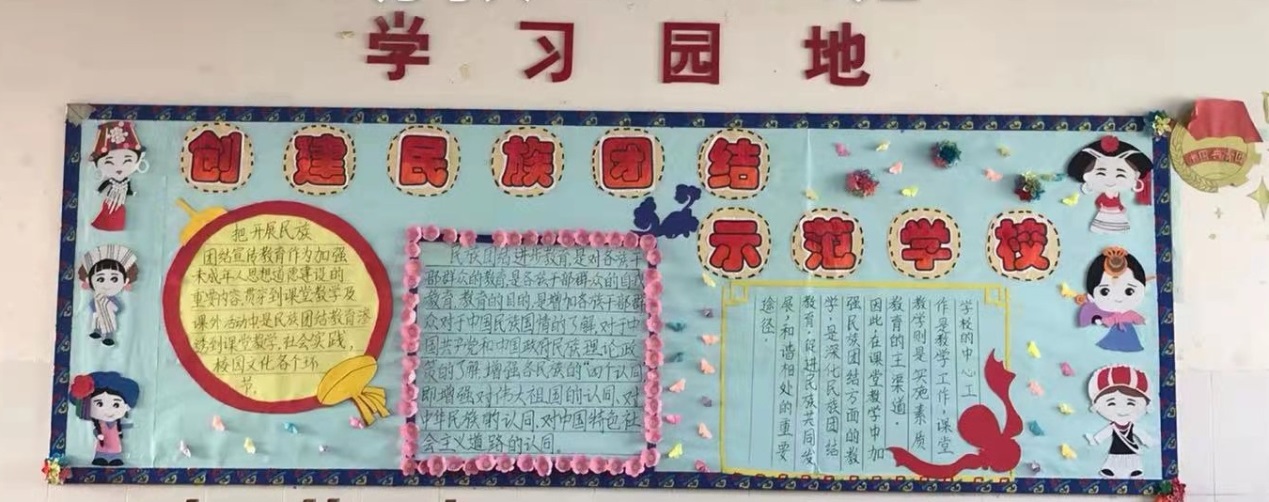 学习园地
创建民族团结
示范学校
把开展民族
团结宣传教育作为加强
未成年人思想道德建设的
重要内容,贯穿到课堂教学及
课外活动中是民族团结教育渗
透到课堂教学,社会实践,
校园文化各个环
节。
民族团结进步教育,是对各族干
部群众的教育,是各族干部群众的自我
教育,教育的目的,是增加各族干部群
众对于中国民族国情的了解,对于中
国共产党和中国政府民族理论政
策的了解,增强各民族的“四个认同”
即增强对伟大祖国的认同、对
中华民族的认同、对中国特色社
会主义道路的认同。
学校的中心工
作是教学工作,课堂
教学则是实施素质
教育的主渠道。
因此在课堂教学中加
强民族团结方面的教
学,是深化民族团结
教育,促进民族共同发
展,和谐相处的重要
途径。